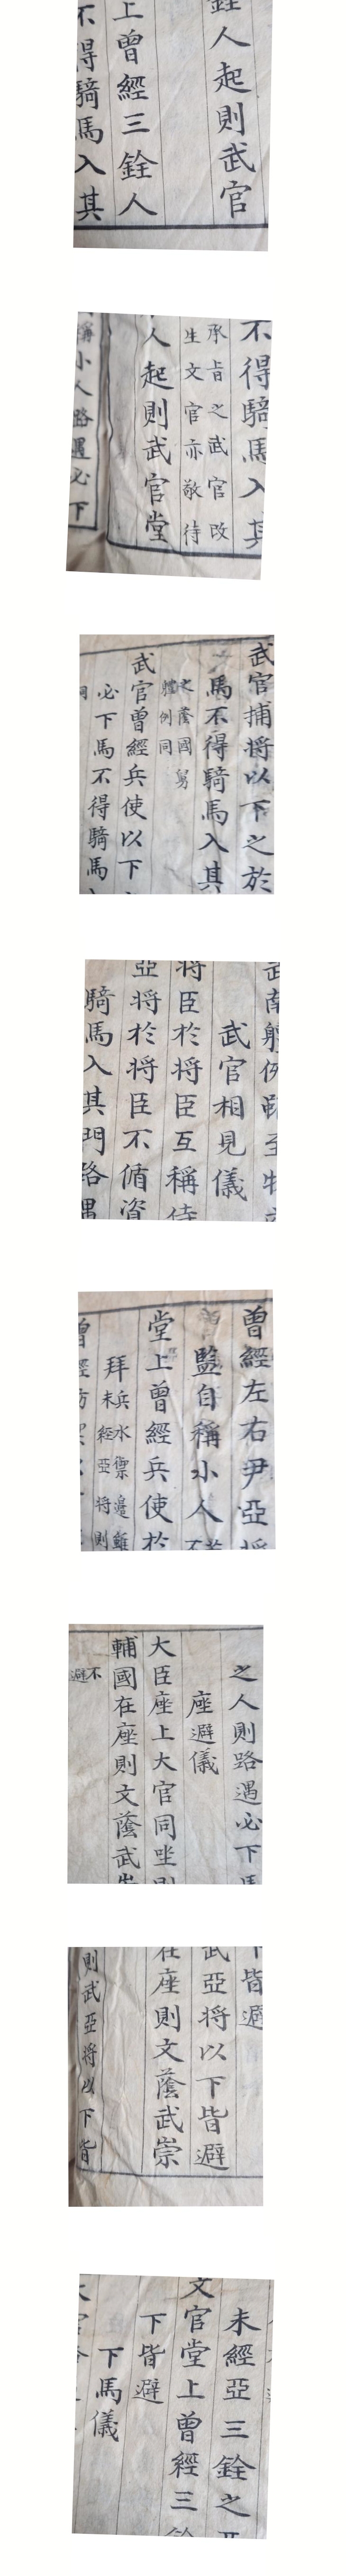 人起則武官
上曾經三銓人
得騎馬入其
不得騎馬入其
承旨之武官改
生文官亦敬待
人起則武官堂
小人路遇必下
武官捕將以下之於
馬不得騎馬入其
之蔭國舅
體例同
武官曾經兵使以下
必下馬不得騎馬
武官相見儀
將臣於將臣互稱侍
亞將於將臣不循資
騎馬入其門路遇
曾經左右尹亞將
監自稱小人
堂上曾經兵使於
拜
兵水禦邊雖
未經亞將則
之人則路遇必下馬
座避儀
大臣座上大官同坐則
輔國在座則文蔭武崇
不
避
下皆避
武亞將以下皆避
在座則文蔭武崇
則武亞將以下皆
未經亞三銓之
文官堂上曾經三
下皆避
下馬儀